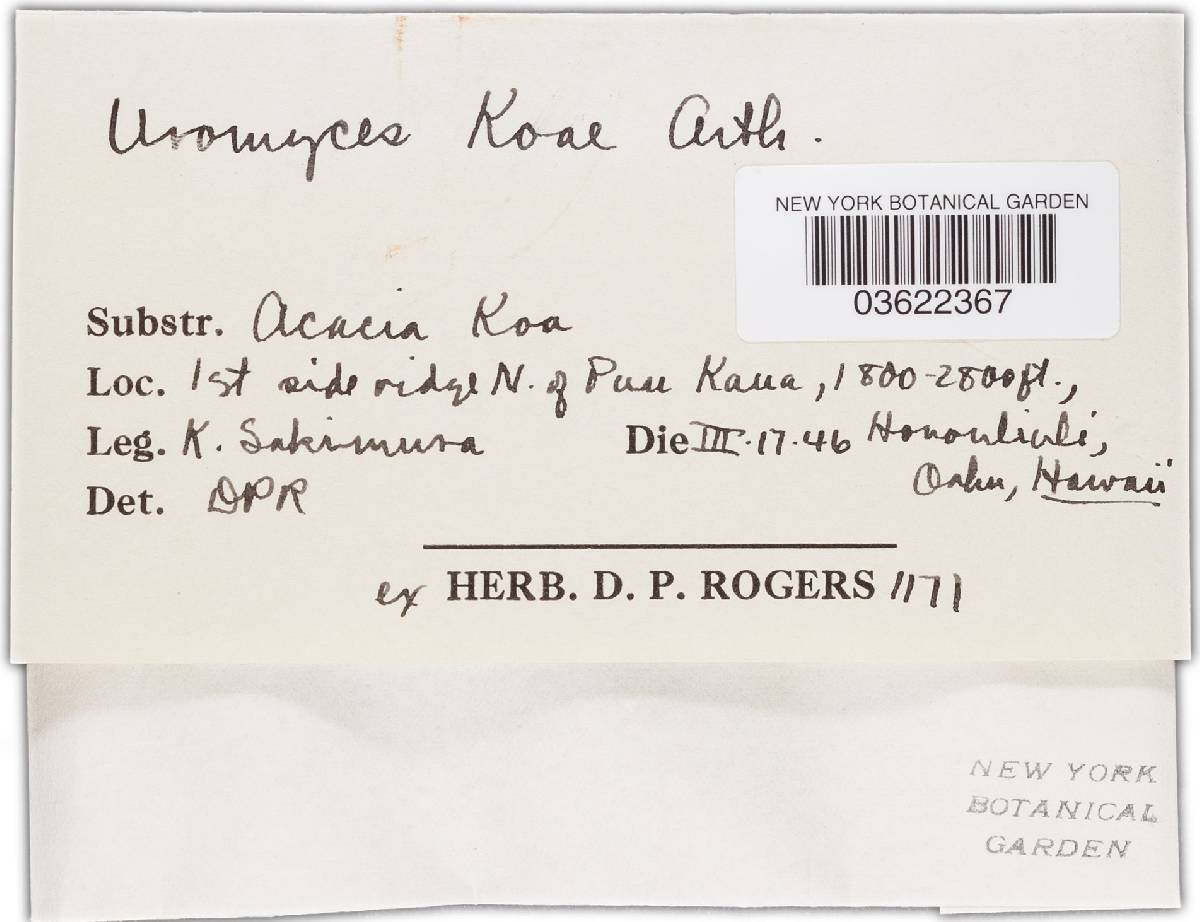 Uromyces Koae Arth.
NEW YORK BOTANICAL GARDEN
03622367
Substr. Acacia Koa
Loc. 1st side ridge N. of Puu Kaua, 1800-2800ft.,
Leg. K. Sakimura Die III.17.46 Honouliuli,
Oahu, Hawaii
Det. DPR
ex HERB. D. P. ROGERS 1171
NEW YORK
BOTANICAL
GARDEN